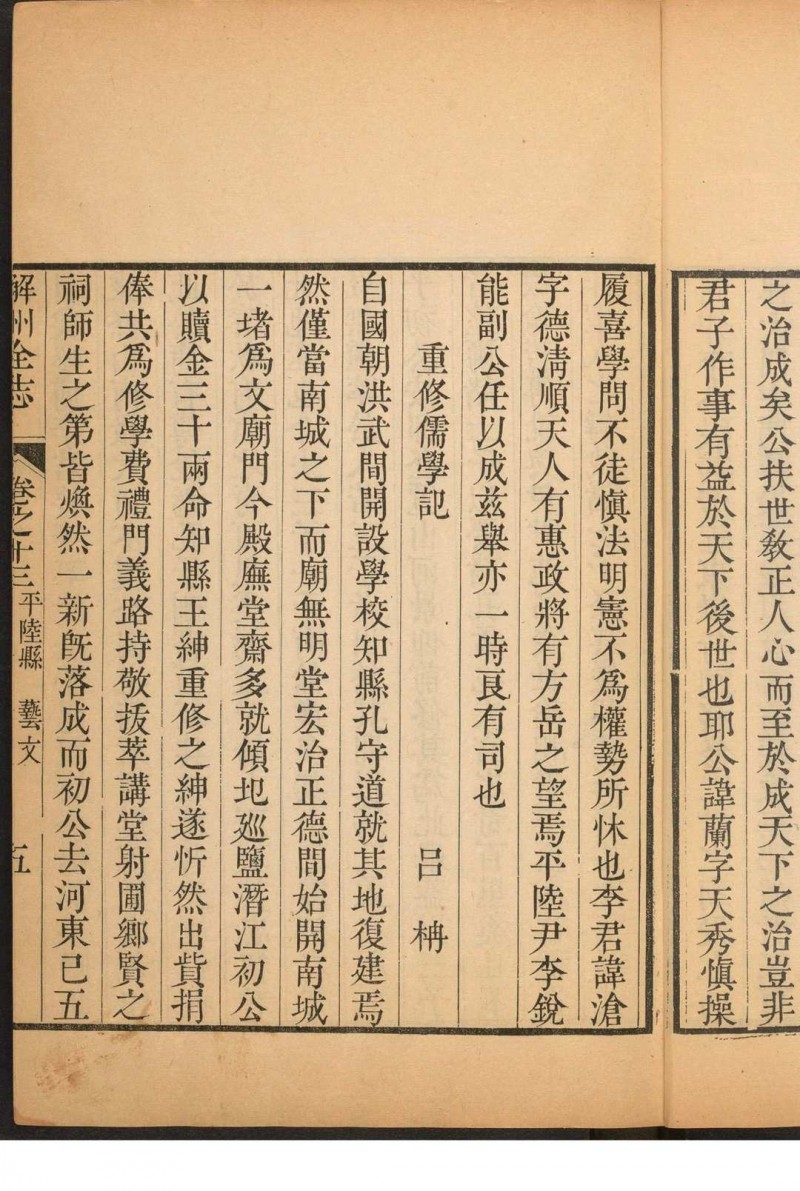 之治成矣公扶世敎正人心而至於成天下之治豈非
君子作事有益於天下後世也耶公諱蘭字天秀愼操
履喜學問不徒愼法明憲不爲權勢所怵也李君諱滄
字德淸順天人有惠政將有方岳之望焉平陸尹李銳
能副公任以成茲舉亦一時良有司也
重修儒學記 呂柟
自國朝洪武間開設學校知縣孔守道就其地復建焉
然僅當南城之下而廟無明堂宏治正德間始開南城
一堵爲文廟門今殿廡堂齋多就傾圯廵鹽潛江初公
以贖金三十兩命知縣王紳重修之紳遂忻然出貲捐
俸共爲修學費禮門義路持敬拔萃講堂射圃鄕賢之
祠師生之第皆煥然一新旣落成而初公去河東已五
解州全志 卷之十三 平陸縣 藝文 五